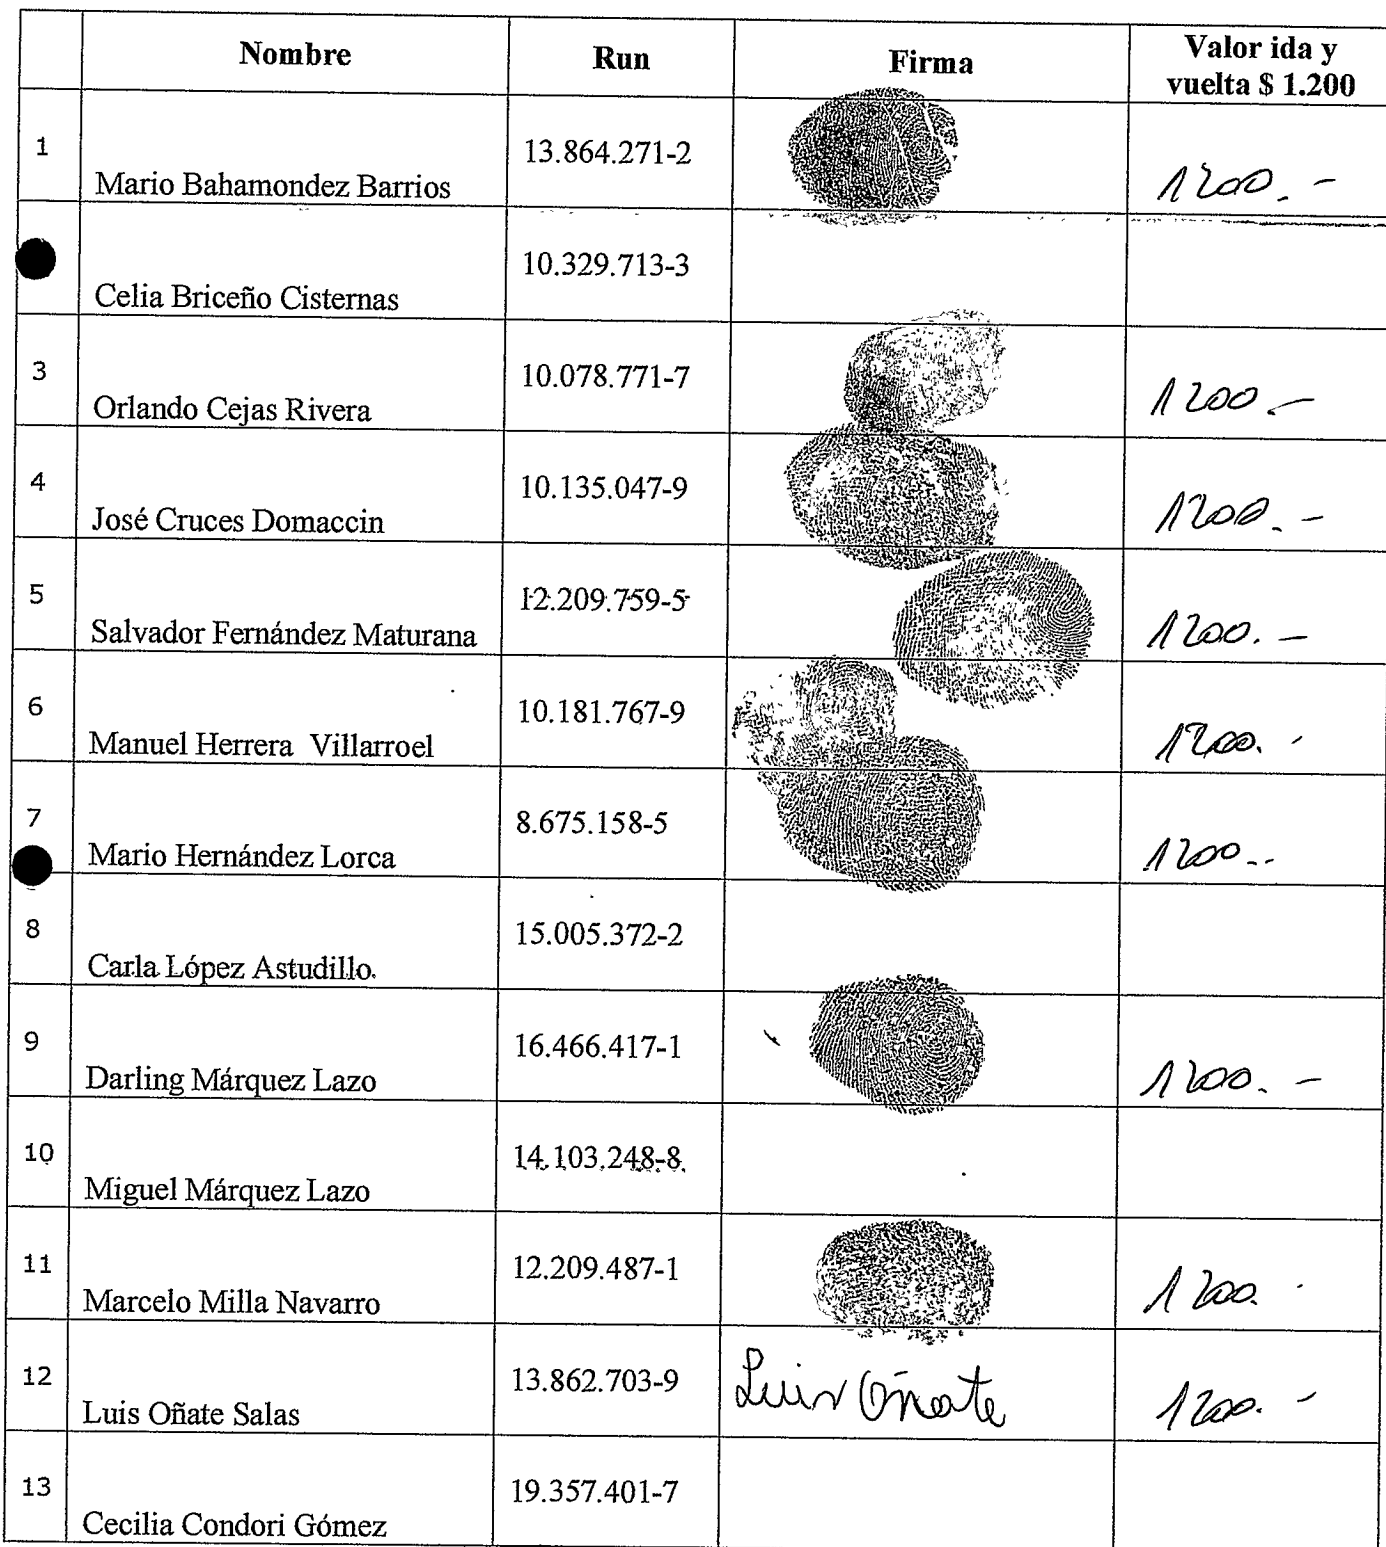 Nombre Run Firma Valor ida y
vuelta $ 1.200
1 Mario Bahamondez Barrios 13.864.271-2 1200.-
Celia Briceño Cisternas 10.329.713-3
3 Orlando Cejas Rivera 10.078.771-7 1200.-
4 José Cruces Domaccin 10.135.047-9 1200.-
5 Salvador Fernández Maturana 12.209.759-5 1200.-
6 Manuel Herrera Villarroel 10.181.767-9 1200.-
7 Mario Hernández Lorca 8.675.158-5 1200.-
8 Carla López Astudillo. 15.005.372-2
9 Darling Márquez Lazo 16.466.417-1 1200.-
10 Miguel Márquez Lazo 14.103.248-8
11 Marcelo Milla Navarro 12.209.487-1 1200.
12 Luis Oñate Salas 13.862.703-9 Luis Oñate 1200.-
13 Cecilia Condori Gómez 19.357.401-7